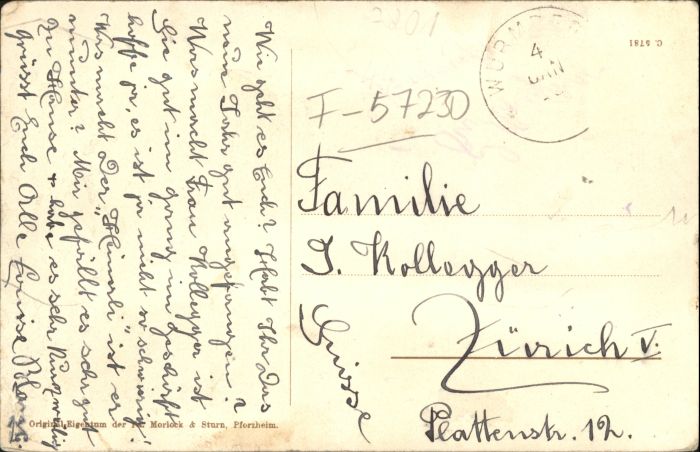 Wie geht es Euch? Habt Ihr das
neue Jahr gut angefangen?
Was macht Frau Kollegger ist
Sie gut im gang im geschäft
hoffe ja, es ist ja nicht so schwierig!
Was macht Der „Heinerli" ist er
munter? Mir gefällt es sehr gut
zu Hause & habe es sehr
grüsst Euch Alle Louise
2201
C. 5781
4
JAN
F-57230
Familie
J. Kollegger
Zürich V.
Plattenstr. 12.
Suisse
Original-Eigentum der Fa. Morlock & Sturn, Pforzheim.